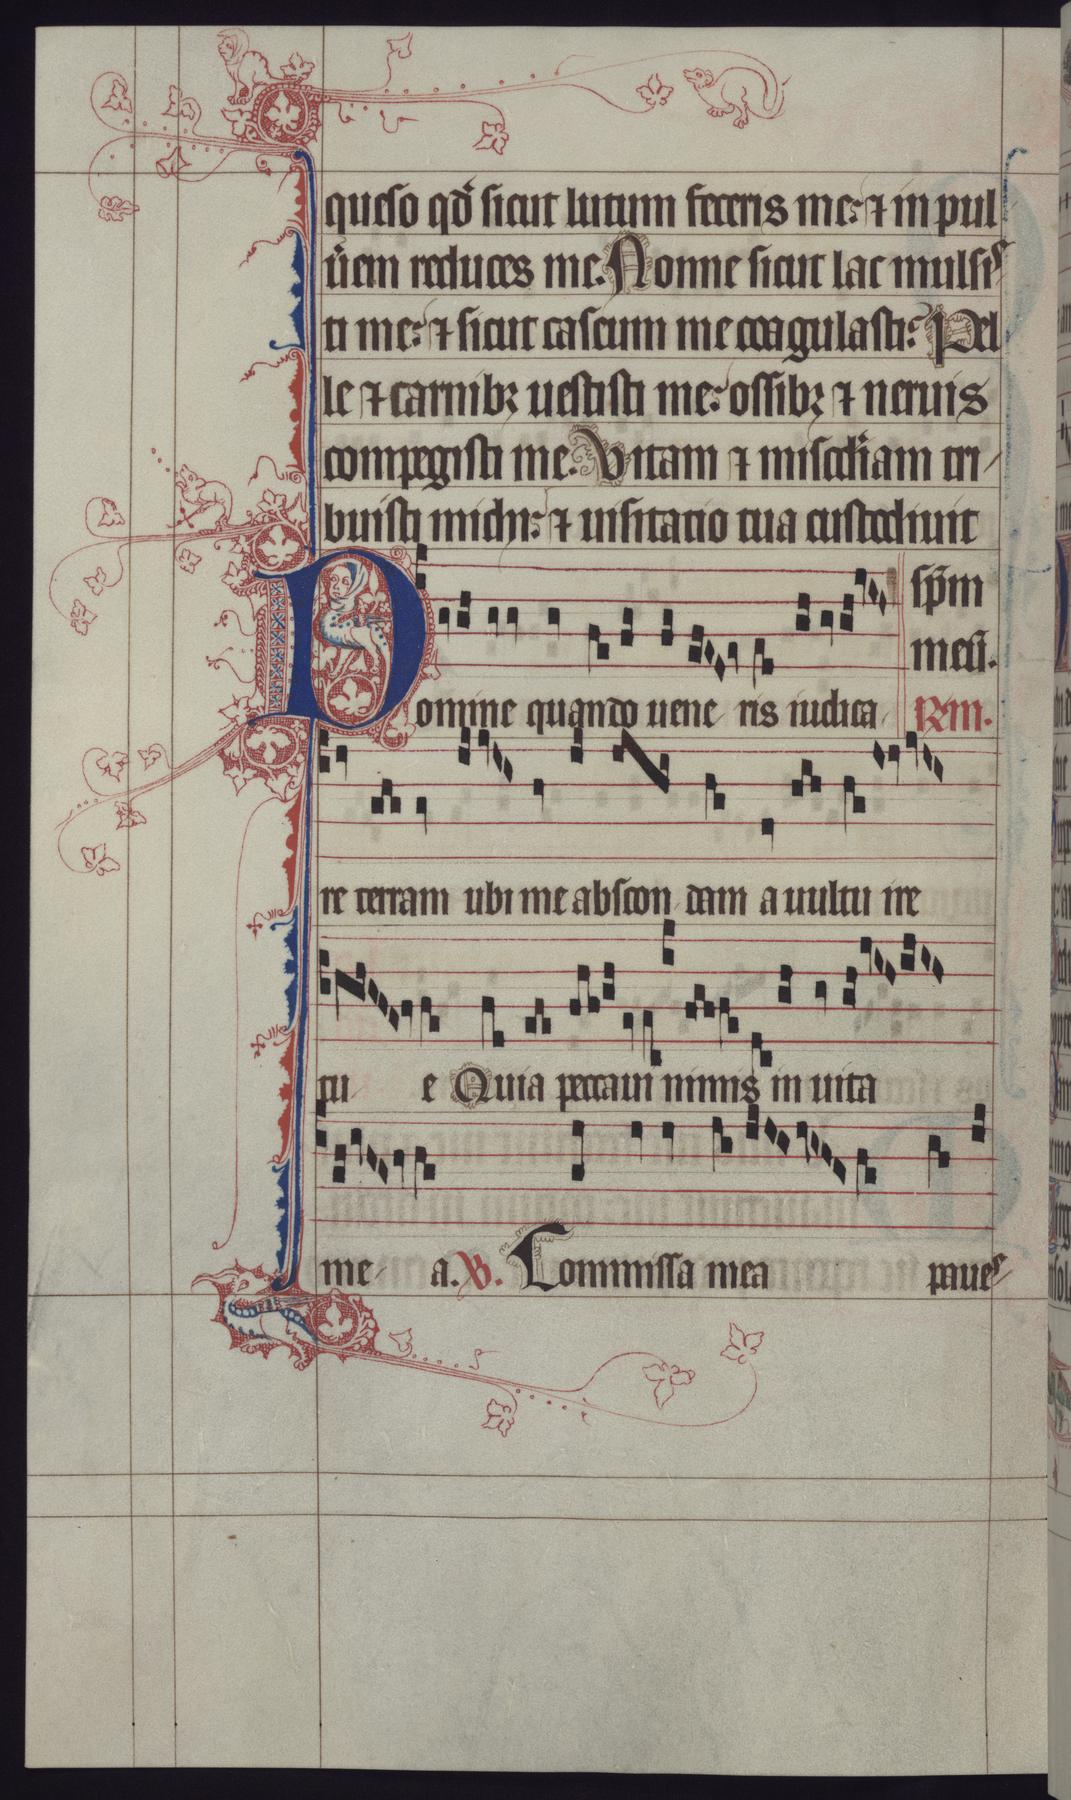 queso qd̄ sicut lutum feceris me: ⁊ in pul
ūem reduces me. Nonne sicut lac mulsi
ti me: ⁊ sicut caseum me coagulasti: Pel
le ⁊ carnibꝫ uestisti me: ossibꝫ ⁊ neruis
compegisti me. Vitam ⁊ misc̄diam tri
buisti michi: ⁊ uisitatio tua custodiuit
sp̄m
meū.
Domine quando uene ris iudica
Rm.
re terram ubi me abscon dam a uultu ire
tu e Quia peccaui nimis in uita
me a. V. Commissa mea paue